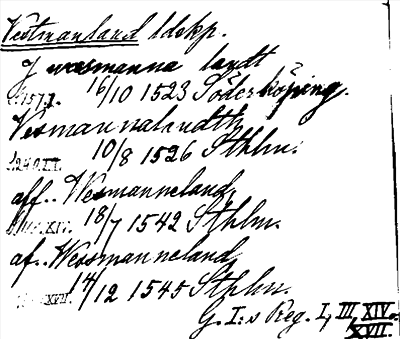 Vestmanland ldskp.
J wesmanna landt
16/10 1523 Söderköping.
Vesmannalandth
10/8 1526 Sthlm.
aff.. Wesmanneland
18/7 1542 Sthlm.
af.. Wessmanneland
14/12 1545 Sthlm.
G. I:s Reg. I, III, XIV.
XVII.